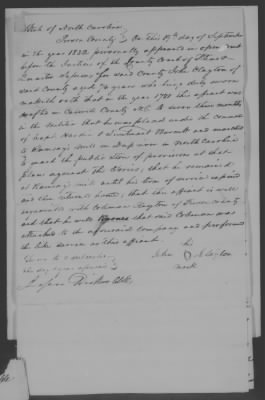 State of North Carolina
Person County } On this 17th day of September
in the year 1832 personally appeared in open court
before the Justices of the County Court of Pleas &
Quarter Sessions for said County John Clayton of
said County aged 74 years who being duly sworn
maketh oath that in the year 1781 this affiant was
drafted in Caswell County NC to serve three months
in the militia that he was placed under the command
of Capt. Harden & Lieutenant and marched
to Ramsays Mill on Deep river in North Carolina
to guard the public store of provisions at that
place against the Tories, that he remained
at Ramsays mill until his term of service expired
and then returned home; that this affiant is well
acquainted with Coleman Clayton of Person County
and that he well knows that said Coleman was
attached to the aforesaid company and performed
the like service as this affiant.
Sworn to & subscribed
the day & year aforesaid
his
John Clayton
mark
Jesse Dickens Clk